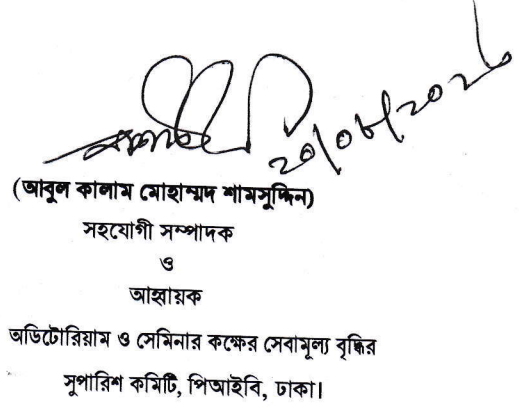 (আবুল কালাম মোহাম্মদ শামসুদ্দিন)
সহযোগী সম্পাদক
ও
আহ্বায়ক
অডিটোরিয়াম ও সেমিনার কক্ষের সেবামূল্য বৃদ্ধির
সুপারিশ কমিটি, পিআইবি, ঢাকা।